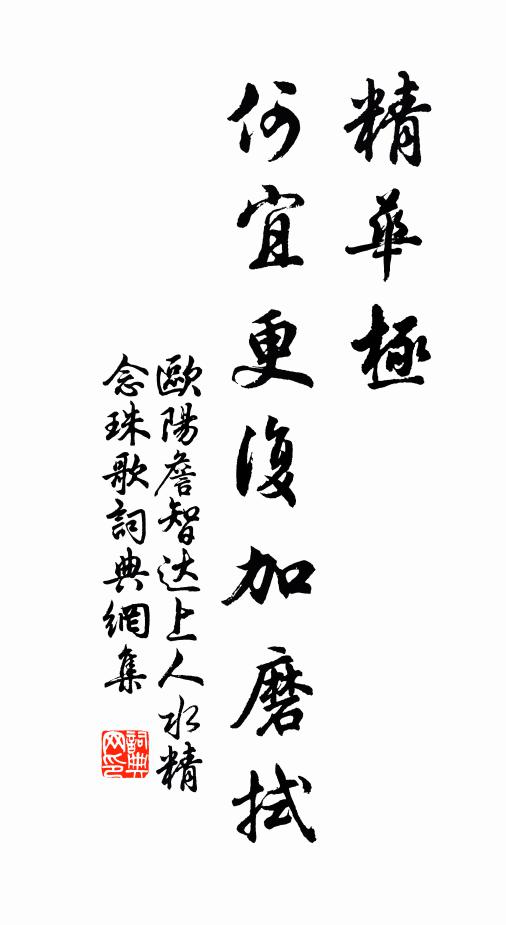 精華極
何宜更復加磨拭
歐陽詹智达上人水精
念珠歌詞典網集
詞典
网印